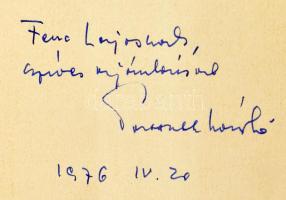 Fenc Lajosnak,
szíves ajánlással
László
1976 IV. 20